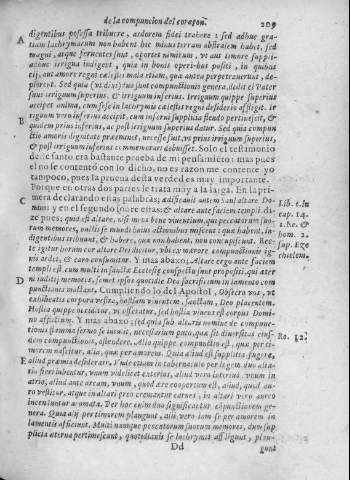 de la compuncion del coraçon. 209
digentibus possessa tribuere, ardorem fidei trahere: sed adhuc gra-
A tiam lachrymarum non habent hic nimirum terram abstralem habet, sed
magni, atque feruentes sunt, oportet nimirum, vt aut timore suppli-
adhuc irrigua indigent, quia in bonis operibus positi, in quibus
cij, aut amore regni cælestis mala etiam, quæ antea perpetrauerunt, de-
plorent. Sed quia (vt dixi) duo sunt compunctionis genera, dedit ei Pater
suus irriguum superius, & irriguum inferius. Irriguum quippe superius
accipit anima, cum sese in lacrymis cælestis regni desiderio affligit. Ir
B riguum vero inferius accipit, cum inferni supplicia flendo pertimescit, &
quidem prius inferius, ac post irriguum superius datur. Sed quia compun
ctio amoris dignitate præeminet, necesse fuit, vt prius irriguum superius,
& post irriguum inferius commemorari debuisset. Solo el testimonio
deste santo era bastante prueba de mi pensamiēto: mas pues
el no se contentò con lo dicho, no es razon me contente yo
tampoco, pues la prueua desta verdad es muy importante.
Porque en otras dos partes lo trata muy a la larga. En la pri-
C mera declarando estas palabras; ædificauit autem Saul altare Domi-
no; y en el segundo sobre estas: & altare ante faciem templi. di-
ze pues; quid est altare, nisi mens bene viuentium, quæ peccatorum suo-
rum memores,
te igitur horum cor altare Dei dicitur, vbi ex mærore compunctionis ig-
nis ardet, & caro consumitur. Y mas abaxo; Altare ergo ante faciem
templi est. cum multi in sancta Ecclesiæ conspectu sunt propositi, qui æter
D ni iudicij memores, semet ipsos quotidie Deo sacrificium in lamento com
punctionis mactant. Cumpliendo lo del Apostol, Obsecro vos, vt
exhibeatis corpora vestra, hostiam viuentem, sanctam, Deo placentem.
Hostia quippe occiditur, vt offeratur, sed hostia viuens est corpus Domi-
no afflictum. Y mas abaxo; sed quia sub altaris nomine de compunc-
tionis flamma sermo se intulit, necessarium puto, quæ sit diuersitas eius-
dem compunctionis, ostendere. Alio quippe compunctio est, quæ per ti-
morem nascitur, alia, quæ per amorem. Quia aliud est supplicia fugere,
E aliud præmia desiderare. Vnde etiam in tabernaculo per legem duo alta-
ria fieri iubentur, vnum videlicet exterius, aliud vero interius. vnum in
atrio, aliud ante arcam, vnum, quod ære coopertum est, aliud, quod au-
ro vestitur, atque in altari æreo cremantur carnes, in altari vero aureo
incenduntur aromata. Per hoc enim duo significantur cōpunctionum ge-
nera. Quia alij per timorem plangunt, alij vero iam se per amorem in
lamentis afficiunt. Multi namque peccatorum suorum memores, dum sup
plicia æterna pertimescunt, quotidianis se lachrymis affligunt, plan-
Dd gunt
Lib. 1. in
cap. 14.
1. Re. &
hom. 2.
sup. Eze
chielem.
Ro. 12.